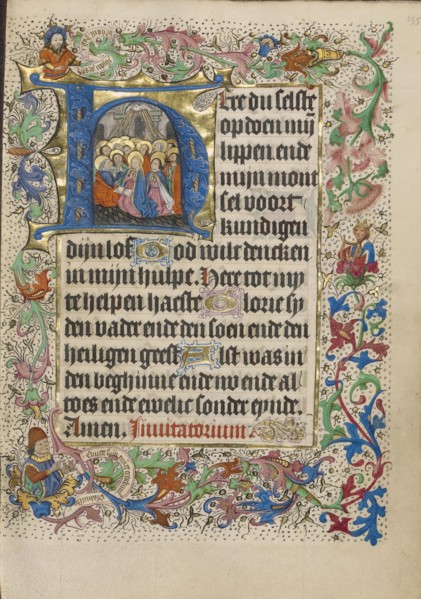 Here du selste
op doen mij
lippen ende
mijn mont
sel voort
kundigen
dijn lof God wilt dencken
in mijn hulpe. Here tot my
te helpen haeste Glorie sy
den vader ende den soen ende den
heiligen geest Alst was in
den beghinne ende nv ende al
toes ende ewelic sonder eynde.
Amen. Inuitatorium.